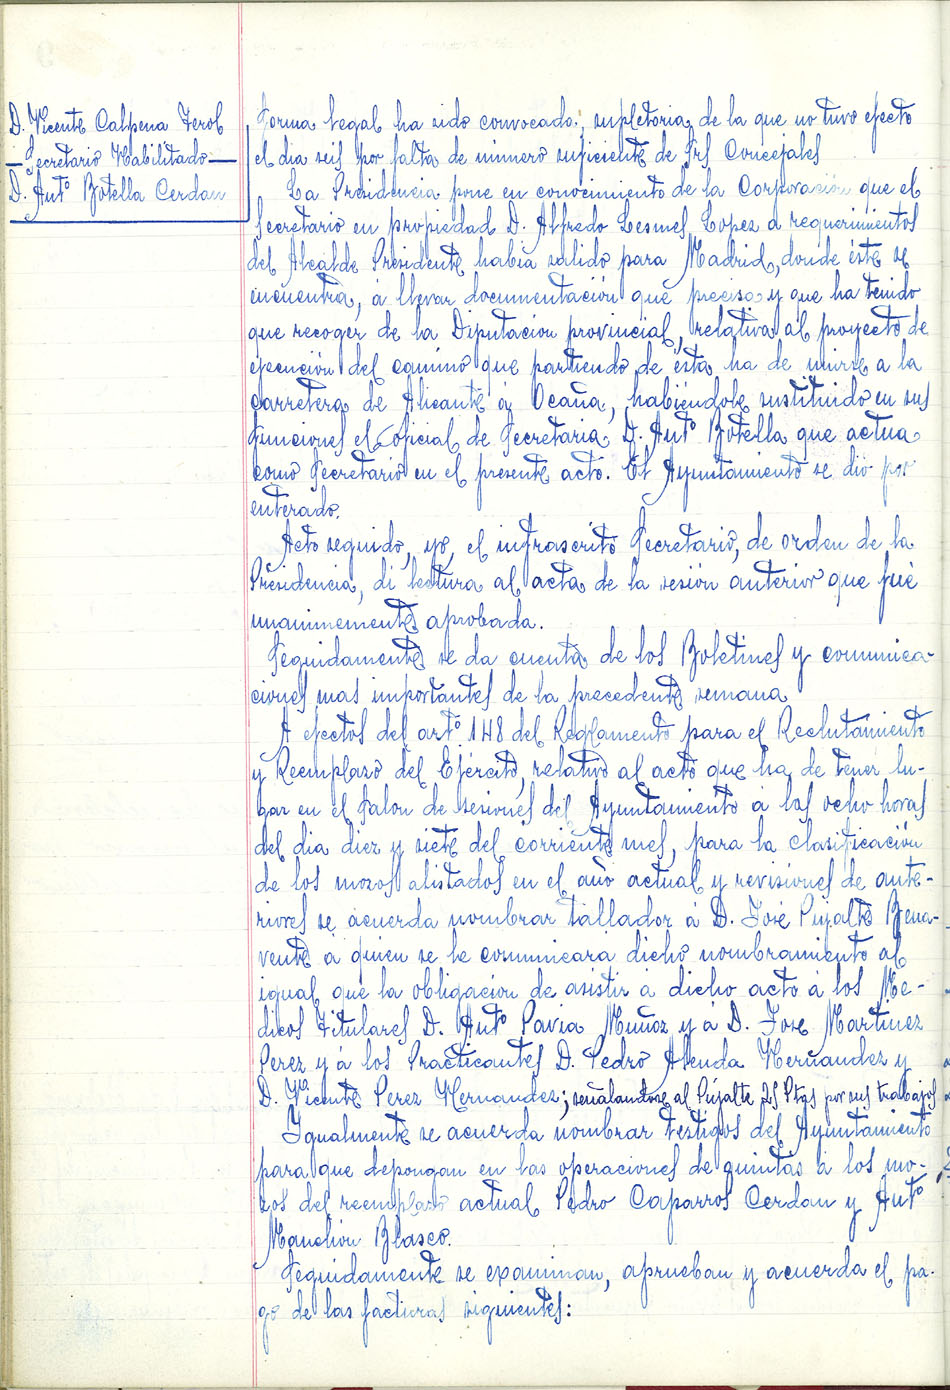 D. Vicente Calpena Terol
Secretario Habilitado
D. Antº Botella Cerdan
forma legal ha sido convocado, supletoria de la que no tuvo efecto
el dia seis por falta de número suficiente de Srs Concejales
La Presidencia pone en conocimiento de la Corporación que el
Secretario en propiedad D. Alfredo Lesmes Lopez a requerimientos
del Alcalde Presidente habia salido para Madrid, donde éste se
encuentra, á llevar documentación que precisa y que ha tenido
que recoger de la Diputación provincial, relativa al proyecto de
ejecución del camino que partiendo de ésta ha de unirse a la
carretera de Alicante á Ocaña, habiéndole sustituido en sus
funciones el oficial de Secretaria, D. Antº Botella que actua
como Secretario en el presente acto. El Ayuntamiento se dio por
enterado.
Acto seguido, yo, el infrascrito Secretario, de orden de la
Presidencia, di lectura al acta de la sesión anterior que fué
unanimemente aprobada.
Seguidamente se da cuenta de los Boletines y comunica-
ciones mas importantes de la precedente semana
A efectos del artº 148 del Reglamento para el Reclutamiento
y Reemplazo del Ejército, relativo al acto que ha de tener lu-
gar en el Salon de sesiones del Ayuntamiento á las ocho horas
del dia diez y siete del corriente mes, para la clasificación
de los mozos alistados en el año actual y revisiones de ante-
riores se acuerda nombrar tallador á D. José Pujalte Bena-
vente á quien se le comunicara dicho nombramiento al
igual que la obligacion de asistir a dicho acto á los Me-
dicos titulares D. Antº Pavia Muñoz y á D. Jose Martinez
Perez y á los Practicantes D. Pedro Alenda Hernandez y
D. Vicente Perez Hernandez; señalandose al Pujalte 25 Ptas por sus trabajos
Igualmente se acuerda nombrar testigos del Ayuntamiento
para que depongan en las operaciones de quintas á los mo-
zos del reemplazo actual Pedro Caparros Cerdan y Antº
Manchon Blasco.
Seguidamente se examinan, aprueban y acuerda el pa-
go de las facturas siguientes: